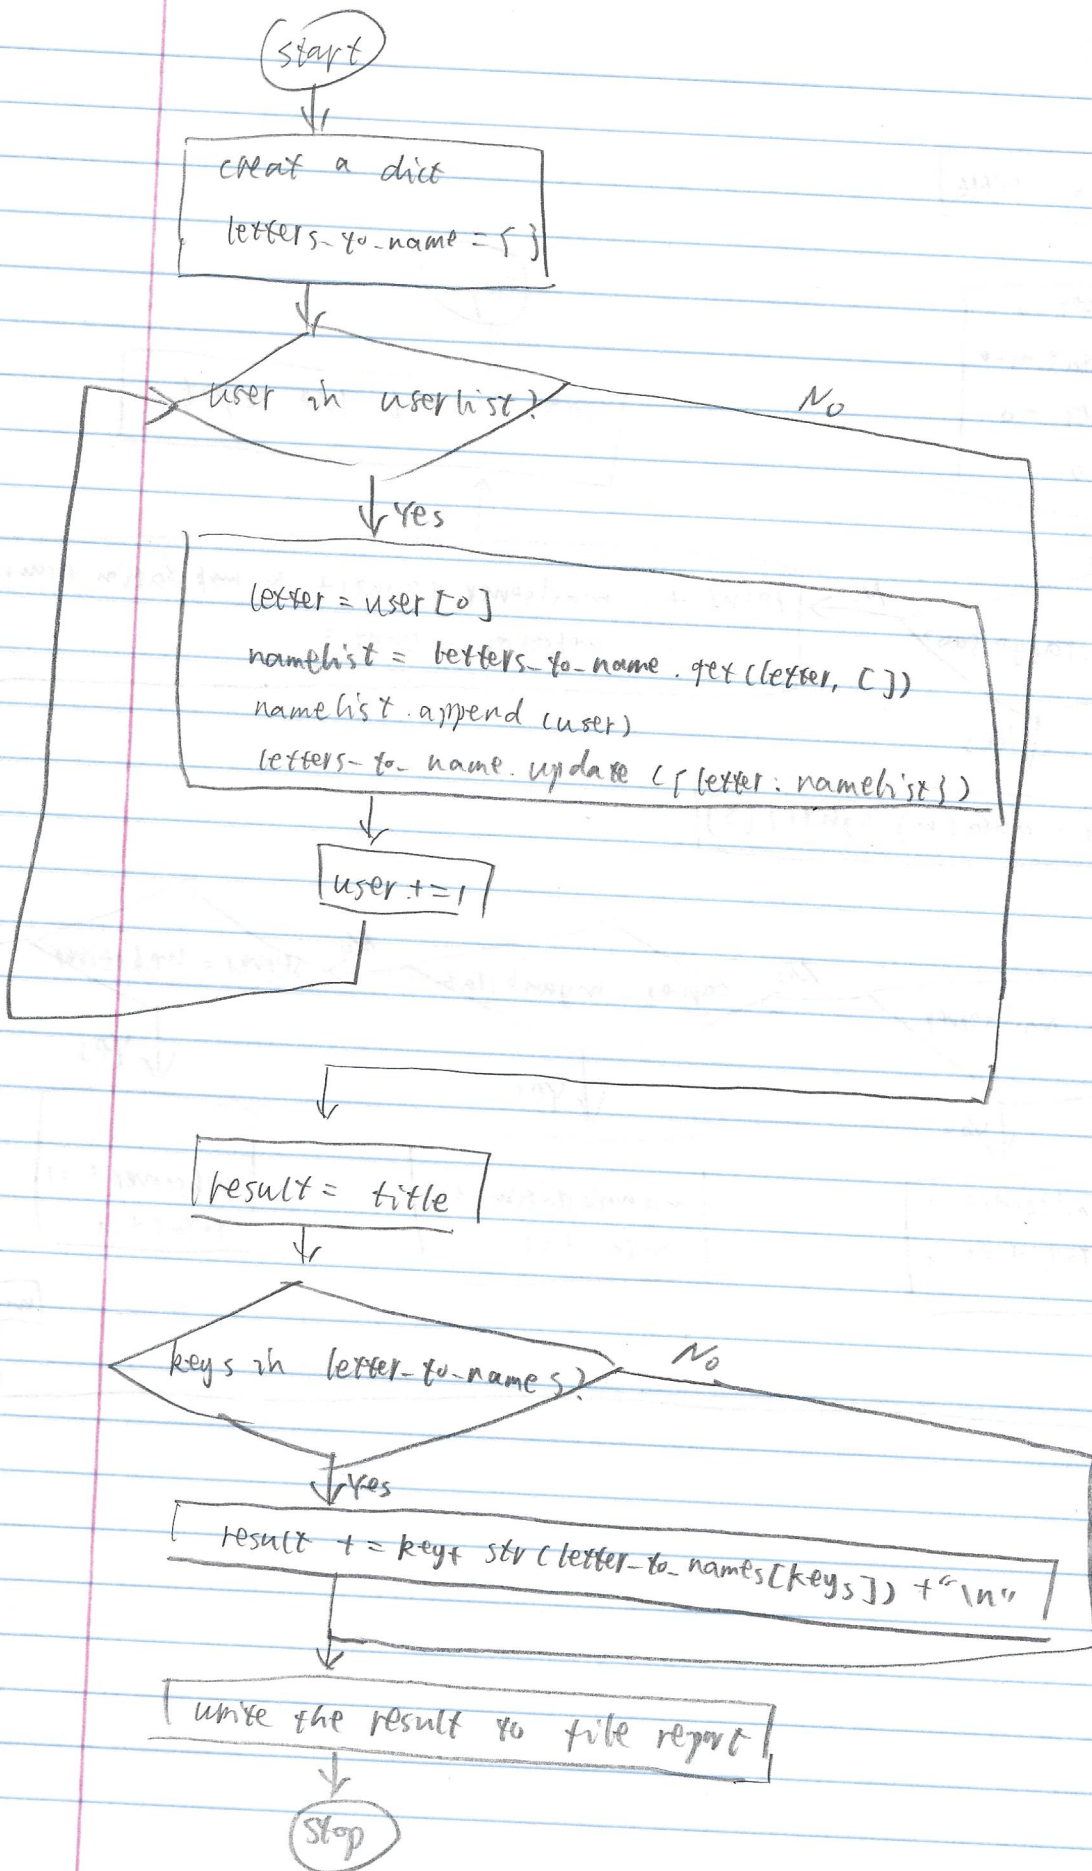 start
creat a dict
letters_to_name = { }
user in userlist?
No
Yes
letter = user [0]
namelist = letters_to_name . get (letter, [ ])
namelist . append (user)
letters_to_name . update ({ letter : namelist })
user += 1
result = title
keys in letter_to_names?
No
Yes
result += key + str (letter_to_names [keys]) + "\n"
write the result to file report
stop